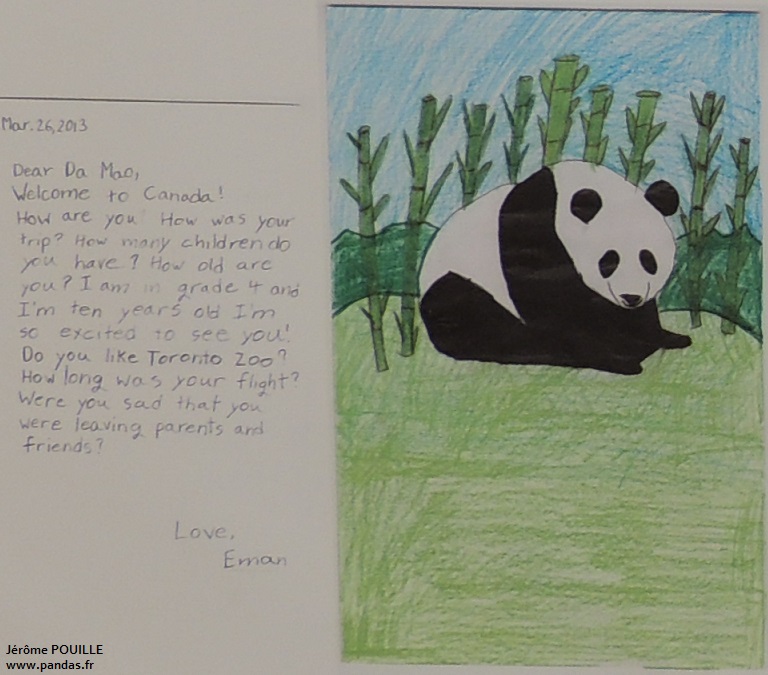 Mar. 26, 2013
Dear Da Mao,
Welcome to Canada!
How are you? How was your
trip? How many children do
you have? How old are
you? I am in grade 4 and
I'm ten years old I'm
so excited to see you!
Do you like Toronto Zoo?
How long was your flight?
Were you sad that you
were leaving parents and
friends?
Love,
Eman
Jérôme POUILLE
www.pandas.fr